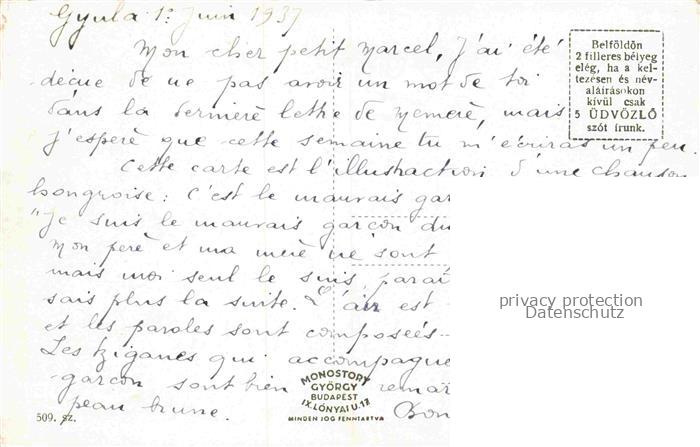 Gyula 1º Juin 1937
Mon cher petit Marcel, J'ai été
décue de ne pas avoir un mot de toi
dans la dernierè lettre de Memerè, mais
j'esperè que cette semaine tu m'écriras un peu.
Cette carte est l'illustraction d'une chanson
hongroise: C'est le mauvais gar
"Je suis le mauvais garçon du
Mon perè et ma merè ne sont
mais moi seul le suis, paraî
sais plus la suite. L'air est
et les paroles sont composeés
Les tziganes qui accompagne
garçon sont bien remar
peau brune. Bon
Belföldön
2 filleres bélyeg
elég, ha a kel-
tezésen és név-
aláirásokon
kívül csak
5 ÜDVÖZLŐ
szót irunk.
privacy protection
Datenschutz
MONOSTORY
GYÖRGY
BUDAPEST
IX. LÓNYAI U. 17
MINDEN JOG FENNTARTVA
509. sz.